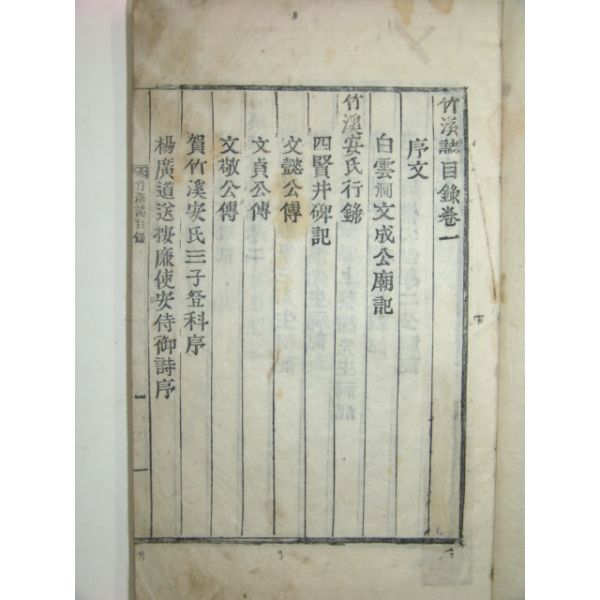 竹溪誌目錄卷一
序文
白雲洞文成公廟記
竹溪安氏行錄
四賢井碑記
文懿公傳
文貞公傳
文敬公傳
賀竹溪安氏三子登科序
楊廣道送按廉使安侍御詩序
竹溪誌目錄
一